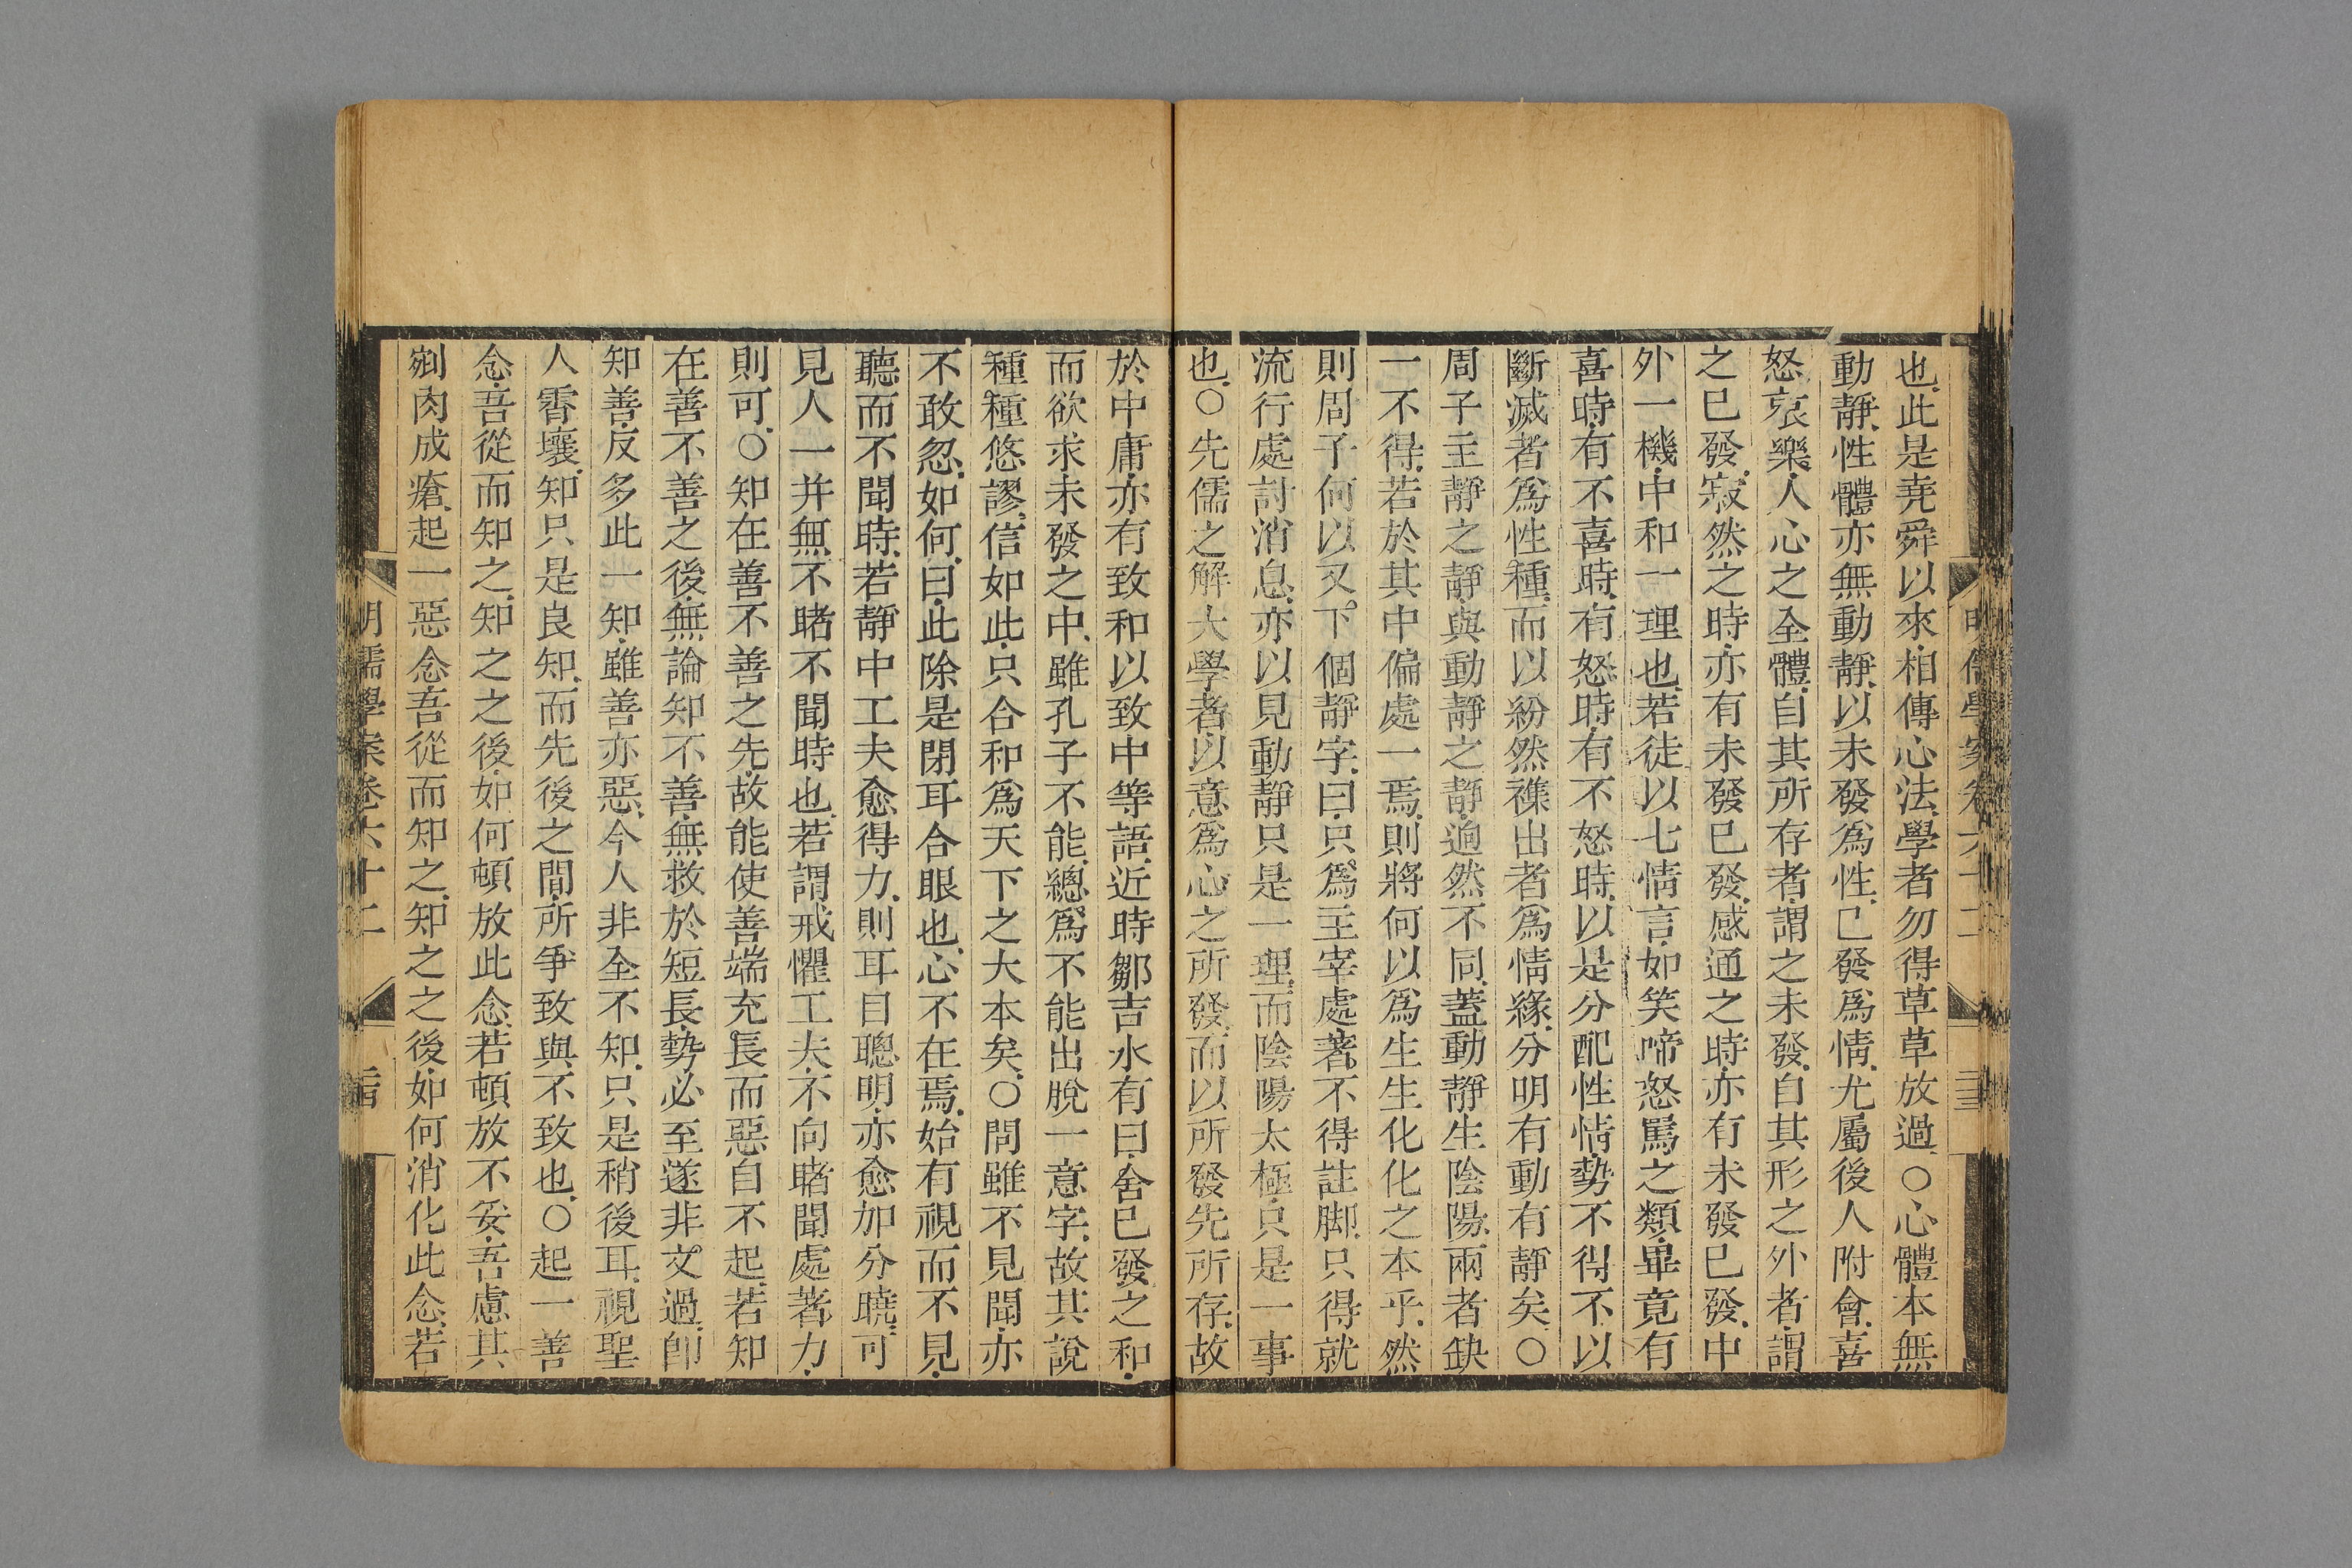 也、此是堯舜以來、相傳心法、學者勿得草草放過、○心體本無
動靜、性體亦無動靜、以未發爲性、已發爲情、尤屬後人附會、喜
怒哀樂、人心之全體、自其所存者、謂之未發、自其形之外者、謂
之已發、寂然之時、亦有未發已發、感通之時、亦有未發已發、中
外一機、中和一理也、若徒以七情言、如笑啼怒罵之類、畢竟有
喜時、有不喜時、有怒時、有不怒時、以是分配性情、勢不得不以
斷滅者爲性種、而以紛然襍出者爲情緣、分明有動有靜矣、○
周子主靜之靜、與動靜之靜、逈然不同、蓋動靜生陰陽、兩者缺
一不得、若於其中偏處一焉、則將何以爲生生化化之本乎、然
則周子何以又下個靜字、曰、只爲主宰處著不得註脚、只得就
流行處討消息、亦以見動靜只是一理、而陰陽太極、只是一事
也、○先儒之解大學者、以意爲心之所發、而以所發先所存、故
於中庸、亦有致和以致中等語、近時鄒吉水有曰、舍已發之和、
而欲求未發之中、雖孔子不能、總爲不能出脫一意字、故其說
種種悠謬、信如此、只合和爲天下之大本矣、○問雖不見聞、亦
不敢忽、如何、曰、此除是閉耳合眼也、心不在焉、始有視而不見、
聽而不聞時、若靜中工夫愈得力、則耳目聰明、亦愈加分曉、可
見人一并無不睹不聞時也、若謂戒懼工夫、不向睹聞處著力、
則可、○知在善不善之先、故能使善端充長而惡自不起、若知
在善不善之後、無論知不善、無救於短長、勢必至遂非文過、卽
知善、反多此一知、雖善亦惡、今人非全不知、只是稍後耳、視聖
人霄壤、知只是良知、而先後之間、所爭致與不致也、○起一善
念、吾從而知之、知之之後、如何頓放此念、若頓放不妥、吾慮其
剜肉成瘡、起一惡念吾從而知之、知之之後、如何消化此念、若
明儒學案卷六十二